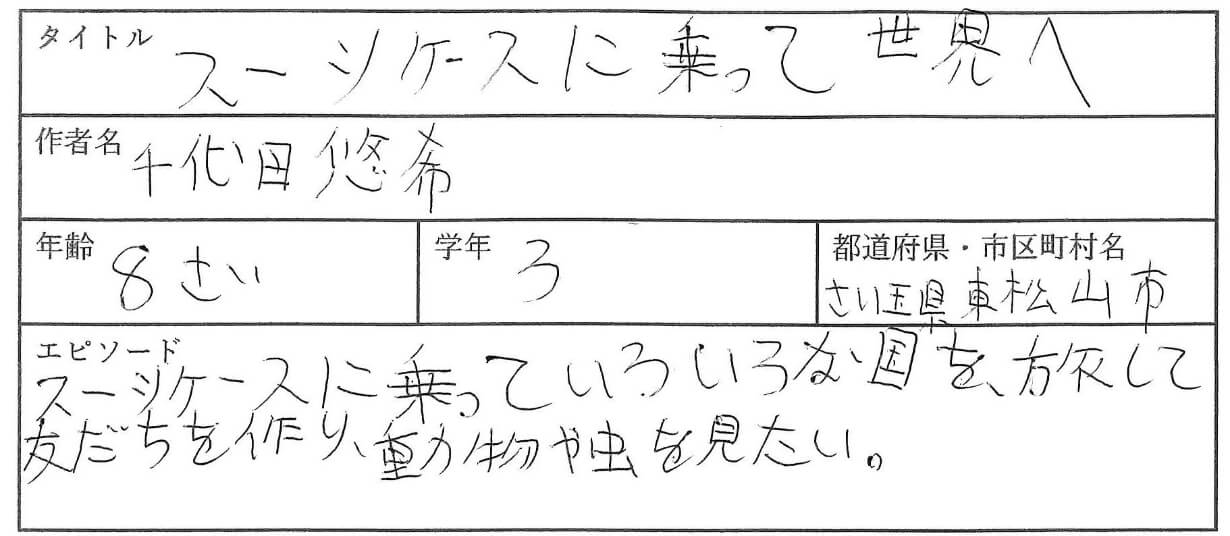 タイトル
スーツケースに乗って世界へ
作者名
千代田悠希
年齢
8さい
学年
3
都道府県・市区町村名
さい玉県東松山市
エピソード
スーツケースに乗っていろいろな国を、旅して
友だちを作り、動物や虫を見たい。